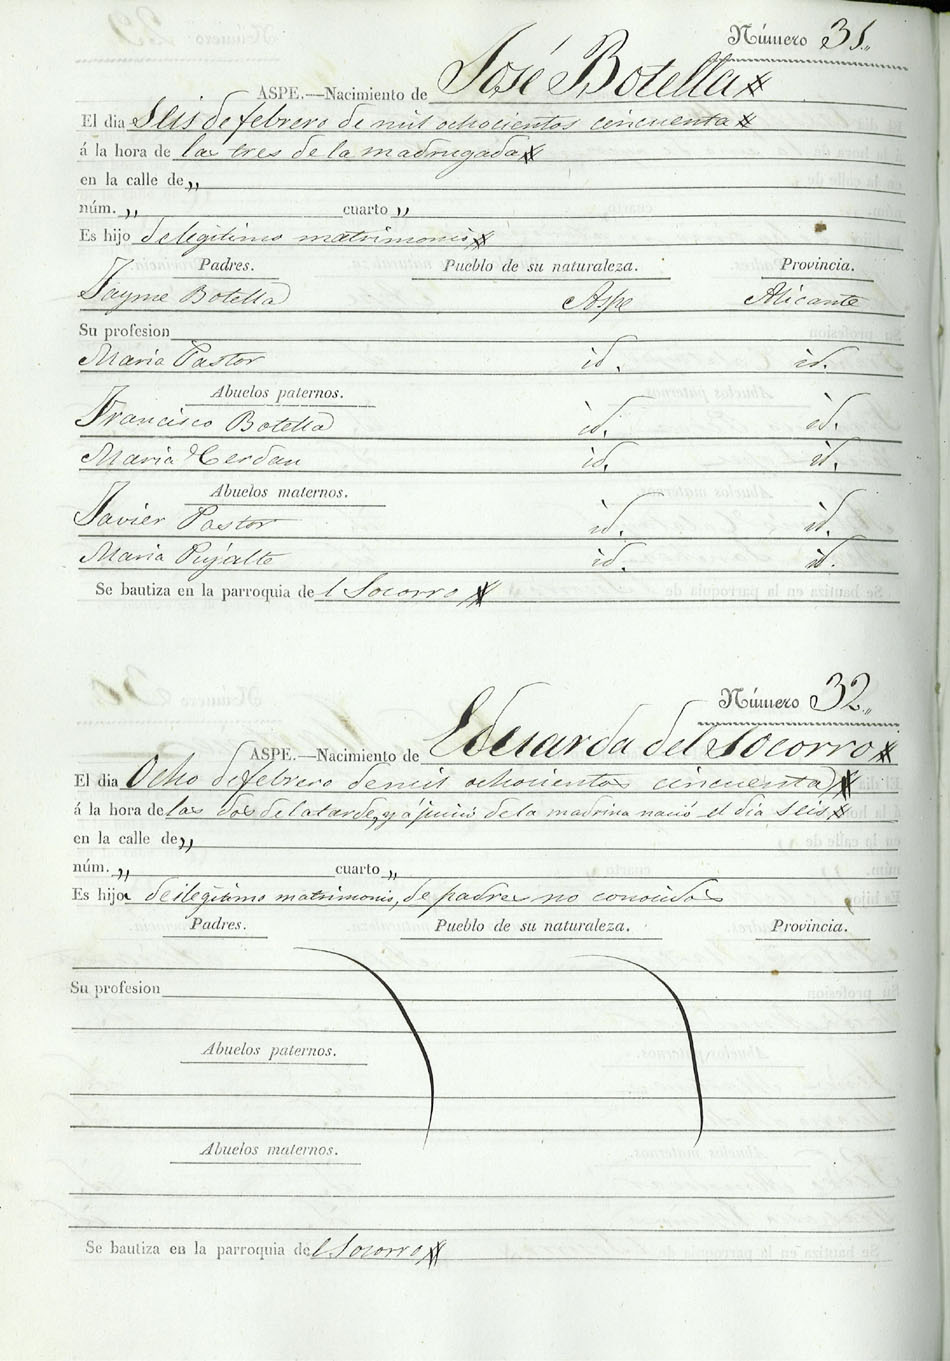 Número 31.
ASPE.—Nacimiento de José Botella
El dia Seis de febrero de mil ochocientos cincuenta
á la hora de las tres de la madrugada
en la calle de „
núm. „ cuarto „
Es hijo de legitimo matrimonio
Padres. Pueblo de su naturaleza. Provincia.
Jayme Botella Aspe Alicante
Su profesion
Maria Pastor id. id.
Abuelos paternos.
Francisco Botella id. id.
Maria Cerdan id. id.
Abuelos maternos.
Javier Pastor id. id.
Maria Pujalte id. id.
Se bautiza en la parroquia del Socorro
Número 32.
ASPE.—Nacimiento de Eduarda del Socorro
El dia Ocho de febrero de mil ochocientos cincuenta
á la hora de las dos de la tarde, y á juicio de la madrina nació el dia seis
en la calle de „
núm. „ cuarto „
Es hija de ilegitimo matrimonio, de padres no conocidos
Padres. Pueblo de su naturaleza. Provincia.
Su profesion
Abuelos paternos.
Abuelos maternos.
Se bautiza en la parroquia del Socorro